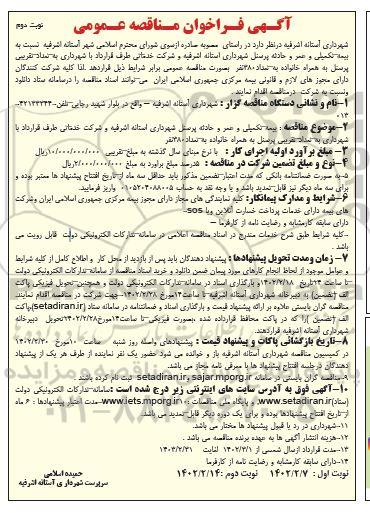 نوبت دوم
آگهی فراخوان مناقصه عمومی
شهرداری آستانه اشرفیه درنظر دارد در راستای مصوبه صادره ازسوی شورای محترم اسلامی شهر آستانه اشرفیه نسبت به
بیمه-تکمیلی و عمر و حادثه پرسنل شهرداری آستانه اشرفیه و شرکت خدماتی طرف قرارداد با شهرداری به-تعداد-تقریبی
پرسنل به همراه خانواده به-تعداد-۳۸۰نفر بصورت مناقصه عمومی برابر شرایط ذیل قراردهد .لذا کلیه شرکت کنندگان
دارای مجوز های لازم و قانونی بیمه مرکزی جمهوری اسلامی ایران می-توانند اسناد مناقصه را درسامانه ستاد دانلود
ونسبت به شرکت درمناقصه اقدام نمایند .
۱-نام و نشانی دستگاه مناقصه گزار : شهرداری آستانه اشرفیه – واقع در بلوار شهید رجایی-تلفن-۴۲۱۳۳۳۴۴-
۰۱۳
۲-موضوع مناقصه : بیمه-تکمیلی و عمر و حادثه پرسنل شهرداری آستانه اشرفیه و شرکت خدماتی طرف قرارداد با
شهرداری به-تعداد تقریبی پرسنل به همراه خانواده به-تعداد-۳۸۰نفر
۳- مبلغ برآورد اولیه اجرای کار : با نرخ مبنای سال گذشته به مبلغ-تقریبی ۱۰/۰۰۰/۰۰۰/۰۰۰ریال
۴-نوع و مبلغ تضمین شرکت در مناقصه : ۵درصد مبلغ برآورد به مبلغ ۲/۰۰۰/۰۰۰/۰۰۰ ریال
۵-به صورت ضمانتنامه بانکی که مدت اعتبار-تضمین مذکور باید حداقل سه ماه از-تاریخ افتتاح پیشنهاد ها معتبر بوده و
برای سه ماه دیگر نیز قابل-تمدید باشد و یا وجه نقد به حساب ۰۱۰۵۲۰۴۰۸۸۰۰۵ واریز فرمایید.
۶-شرایط و مدارک پیمانکار: کلیه نمایندگی های مجاز دارای مجوز بیمه مرکزی جمهوری اسلامی ایران وشرکت
های بیمه دارای خدمات پرداخت خسارت آنلاین ویا SOS-
دارای سابقه کارمشابه و رضایت نامه از کارفرما –
-کلیه شرایط طبق شرح خدمات مندرج در اسناد مناقصه اعلامی در سامانه-تدارکات الکترونیکی دولت قابل رویت می
باشد .
۷- زمان ومدت تحویل پیشنهادها : پیشنهاد دهندگان باید پس از بازدید از محل کار و اطلاع کامل از کلیه شرایط
و عوامل موجود از لحاظ انجام کارهای مورد پیمان ضمن دانلود و خرید اسناد مناقصه از سامانه-تدارکات الکترونیکی دولت
تا ساعت ۱۴تاریخ ۱۴۰۲/۲/۱۸و بارگذاری اسناد در سامانه-تدارکات الکترونیکی دولت و همچنین-تحویل فیزیکی پاکت
الف (تضمین) به دبیرخانه شهرداری آستانه اشرفیه-تا ساعت۱۴مورخ ۱۴۰۲/۲/۲۸-جهت شرکت در مناقصه اقدام نمایند.
مناقصه گران بایستی علاوه بر ارائه پیشنهاد قیمت و بارگذاری اسناد و ضمانتنامه در سامانه ستاد (setadiran.ir)پاکت
الف (تضمین )را که در پاکت محافظ قرارداده شده ،بصورت فیزیکی-تا ساعت۱۴مورخ۱۴۰۲/۲/۲۸تحویل دبیرخانه
شهرداری آستانه اشرفیه قراردهند.
۸-تاریخ بازگشائی پاکات و پیشنهاد قیمت : پیشنهادهای واصله روز شنبه ساعت ۱۰مورخ ۱۴۰۲/۲/۳۰
در کمیسیون مناقصه شهرداری آستانه اشرفیه باز و خوانده می شود حضور یک نفر نماینده از طرف هر یک از پیشنهاد
دهندگان درجلسه افتتاح پیشنهاد ها با معرفی نامه مجاز می باشد.
۹-مناقصه گران بایستی در سامانه sajar.mporg.ir و setadiran.ir ثبت نام کرده باشند .
۱۰-آگهی فوق به آدرس سایت های اینترنتی زیر درج شده است :سامانه-تدارکات الکترونیکی دولت
(ستاد)www.setadiran.ir و پایگاه ملی مناقصات www.iets.mporg.ir-مدت اعتبار پیشنهادها : ۶ ماه
از تاریخ افتتاح پیشنهادها بوده و برای یک دوره دیگر قابل-تمدید می باشد.
۱۱-شهرداری در رد یا قبول پیشنهاد ها مختار می باشد.
۱۲-هزینه انتشار آگهی ها به عهده برنده مناقصه می باشد .
۱۳-مدت قرارداد ازسال شمسی از ۱۴۰۲/۳/۱ لغایت ۱۴۰۳/۲/۳۱
۱۴-دارای سابقه کارمشابه و رضایت نامه از کارفرما
نوبت اول : ۱۴۰۲/۲/۷ نوبت دوم :۱۴۰۲/۲/۱۴
حمیده اسلامی
سرپرست شهرداری آستانه اشرفیه